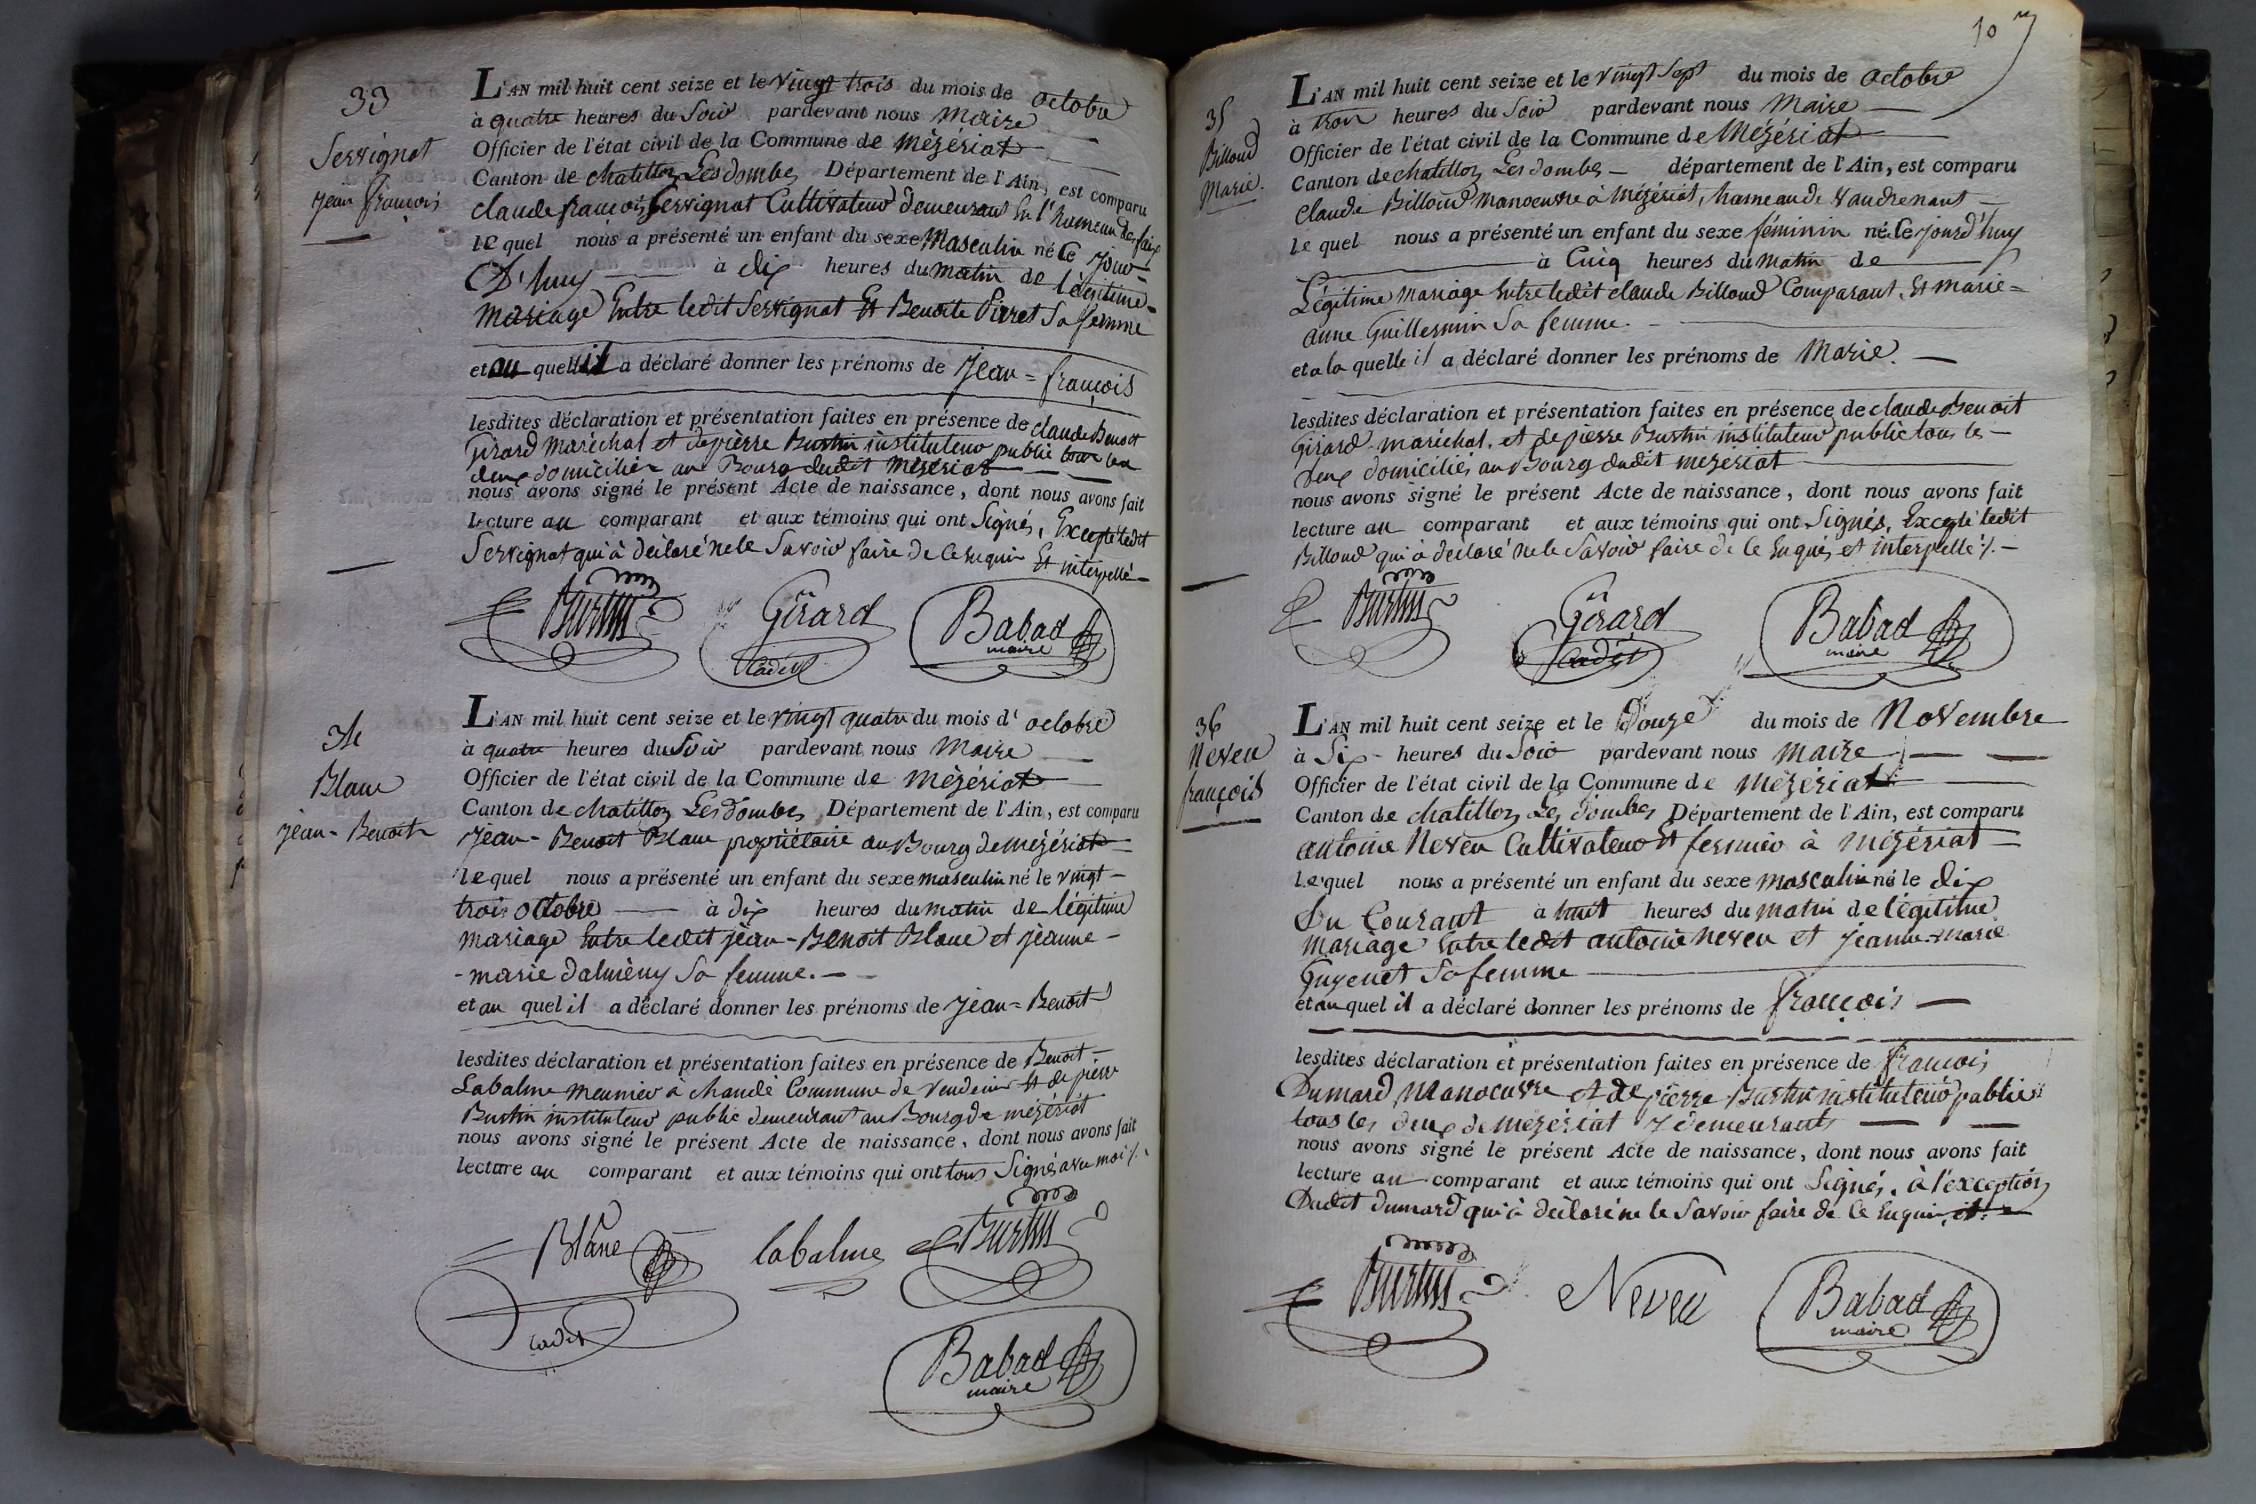 33
Servignat
jean françois
L'AN mil huit cent seize et le vingt trois du mois de octobre
à quatre heures du Soir pardevant nous Maire
Officier de l'état civil de la Commune de Mézériat
Canton de chatillon Les dombes Département de l'Ain, est comparu
claude françois Servignat Cultivateur demeurant en l'hameau de
le quel nous a présenté un enfant du sexe Masculin né le jour
D'huy à dix heures du matin de légitime
mariage Entre ledit Servignat Et Benoite Pirret Sa femme
et au quel il a déclaré donner les prénoms de jean = françois
lesdites déclaration et présentation faites en présence de claude Benoit
Girard Maréchal et de pierre Burtin instituteur public tous les
deux domiciliés au Bourg dudit Mézériat
nous avons signé le présent Acte de naissance, dont nous avons fait
lecture au comparant et aux témoins qui ont Signés, Excepté ledit
Servignat qui à déclaré ne le Savoir faire de ce Enquis Et interpellé
Burtin Girard cadet Babad maire
34
Blanc
jean - Benoit
L'AN mil huit cent seize et le vingt quatre du mois d' octobre
à quatre heures du Soir pardevant nous Maire
Officier de l'état civil de la Commune de Mézériat
Canton de chatillon Les dombes Département de l'Ain, est comparu
jean - Benoit Blanc propriétaire au Bourg de Mézériat
le quel nous a présenté un enfant du sexe masculin né le vingt
trois octobre à dix heures du matin de légitime
mariage Entre ledit jean - Benoit Blanc et jeanne -
- marie dalmény Sa femme.
et au quel il a déclaré donner les prénoms de jean = Benoit
lesdites déclaration et présentation faites en présence de Benoit
Labalme meunier à Commune de Vendeins Et de pierre
Burtin instituteur public demeurant au Bourg de mézériat
nous avons signé le présent Acte de naissance, dont nous avons fait
lecture au comparant et aux témoins qui ont tous Signés avec moi ./.
Blanc cadet labalme Burtin
Babad maire
107
35
Billoud
Marie.
L'AN mil huit cent seize et le vingt Sept du mois de octobre
à trois heures du Soir pardevant nous Maire
Officier de l'état civil de la Commune de Mézériat
Canton de chatillon Les dombes département de l'Ain, est comparu
Claude Billoud manoeuvre à Mézériat, hameau de Vaudrenant
le quel nous a présenté un enfant du sexe féminin né le jourd'huy
à Cinq heures du matin de
Légitime Mariage entre ledit claude Billoud Comparant, Et marie =
anne Guillermin Sa femme.
et a la quelle il a déclaré donner les prénoms de Marie.
lesdites déclaration et présentation faites en présence de claude Benoit
Girard maréchal, et de pierre Burtin instituteur public tous les
deux domiciliés au Bourg dudit mézériat
nous avons signé le présent Acte de naissance, dont nous avons fait
lecture au comparant et aux témoins qui ont Signés, Excepté ledit
Billoud qui à déclaré ne le Savoir faire de ce Enquis, et interpellé ./.
Burtin Girard cadet Babad maire
36
Neveu
françois
L'AN mil huit cent seize et le Douze du mois de Novembre
à Six heures du Soir pardevant nous maire
Officier de l'état civil de la Commune de Mézériat
Canton de chatillon Les dombes Département de l'Ain, est comparu
antoine Neveu Cultivateur Et fermier à Mézériat
le quel nous a présenté un enfant du sexe masculin né le dix
Du Courant à huit heures du matin de légitime
Mariage Entre ledit antoine neveu et jeanne - marie
Guyenet Sa femme
et au quel il a déclaré donner les prénoms de françois
lesdites déclaration et présentation faites en présence de françois
Dumard, Manoeuvre et de pierre Burtin instituteur public
tous les deux de Mézériat y demeurants
nous avons signé le présent Acte de naissance, dont nous avons fait
lecture au comparant et aux témoins qui ont Signés, à l'exception
Dudit dumard qui à déclaré ne le Savoir faire de ce Enquis
Burtin Neveu Babad maire